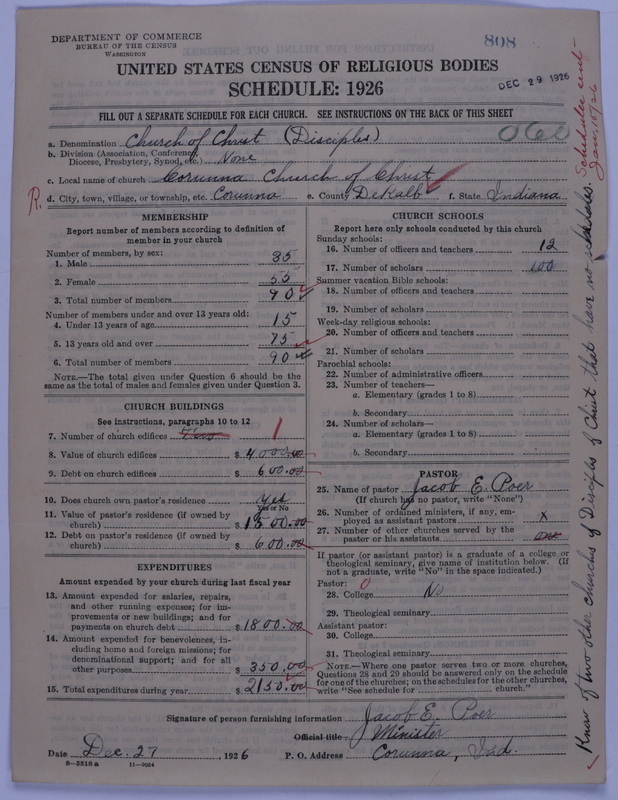 DEPARTMENT OF COMMERCE
BUREAU OF THE CENSUS
WASHINGTON
808
UNITED STATES CENSUS OF RELIGIOUS BODIES
DEC 29 1926
SCHEDULE: 1926
FILL OUT A SEPARATE SCHEDULE FOR EACH CHURCH. SEE INSTRUCTIONS ON THE BACK OF THIS SHEET
060
a. Denomination Church of Christ (Disciples)
b. Division (Association, Conference, Diocese, Presbytery, Synod, etc.) None
c. Local name of church Corunna Church of Christ
R. d. City, town, village, or township, etc. Corunna e. County DeKalb f. State Indiana
MEMBERSHIP
Report number of members according to definition of
member in your church
Number of members, by sex:
1. Male 35
2. Female 55
3. Total number of members 90
Number of members under and over 13 years old:
4. Under 13 years of age 15
5. 13 years old and over 75
6. Total number of members 90
NOTE.—The total given under Question 6 should be the
same as the total of males and females given under Question 3.
CHURCH BUILDINGS
See instructions, paragraphs 10 to 12
7. Number of church edifices 1
8. Value of church edifices $ 4000.00
9. Debt on church edifices $ 600.00
10. Does church own pastor's residence Yes
Yes or No
11. Value of pastor's residence (if owned by
church) $ 1500.00
12. Debt on pastor's residence (if owned by
church) $ 600.00
EXPENDITURES
Amount expended by your church during last fiscal year
13. Amount expended for salaries, repairs,
and other running expenses; for im-
provements or new buildings; and for
payments on church debt $ 1800.00
14. Amount expended for benevolences, in-
cluding home and foreign missions; for
denominational support; and for all
other purposes $ 350.00
15. Total expenditures during year $ 2150.00
CHURCH SCHOOLS
Report here only schools conducted by this church
Sunday schools:
16. Number of officers and teachers 12
17. Number of scholars 100
Summer vacation Bible schools:
18. Number of officers and teachers
19. Number of scholars
Week-day religious schools:
20. Number of officers and teachers
21. Number of scholars
Parochial schools:
22. Number of administrative officers
23. Number of teachers—
a. Elementary (grades 1 to 8)
b. Secondary
24. Number of scholars—
a. Elementary (grades 1 to 8)
b. Secondary
PASTOR
25. Name of pastor Jacob E. Poer
(If church has no pastor, write "None")
26. Number of ordained ministers, if any, em-
ployed as assistant pastors x
27. Number of other churches served by the
pastor or his assistants one
If pastor (or assistant pastor) is a graduate of a college or
theological seminary, give name of institution below. (If
not a graduate, write "No" in the space indicated.)
Pastor: 0
28. College No
29. Theological seminary
Assistant pastor:
30. College
31. Theological seminary
NOTE.—Where one pastor serves two or more churches,
Questions 28 and 29 should be answered only on the schedule
for one of the churches; on the schedules for the other churches,
write "See schedule for church."
Signature of person furnishing information Jacob E. Poer
Official title Minister
Date Dec. 27, 1926 P. O. Address Corunna, Ind.
8—5518a 11—9024
Know of two other churches of Disciples of Christ that have no schedules. Schedules sent—
Jan. 10/26